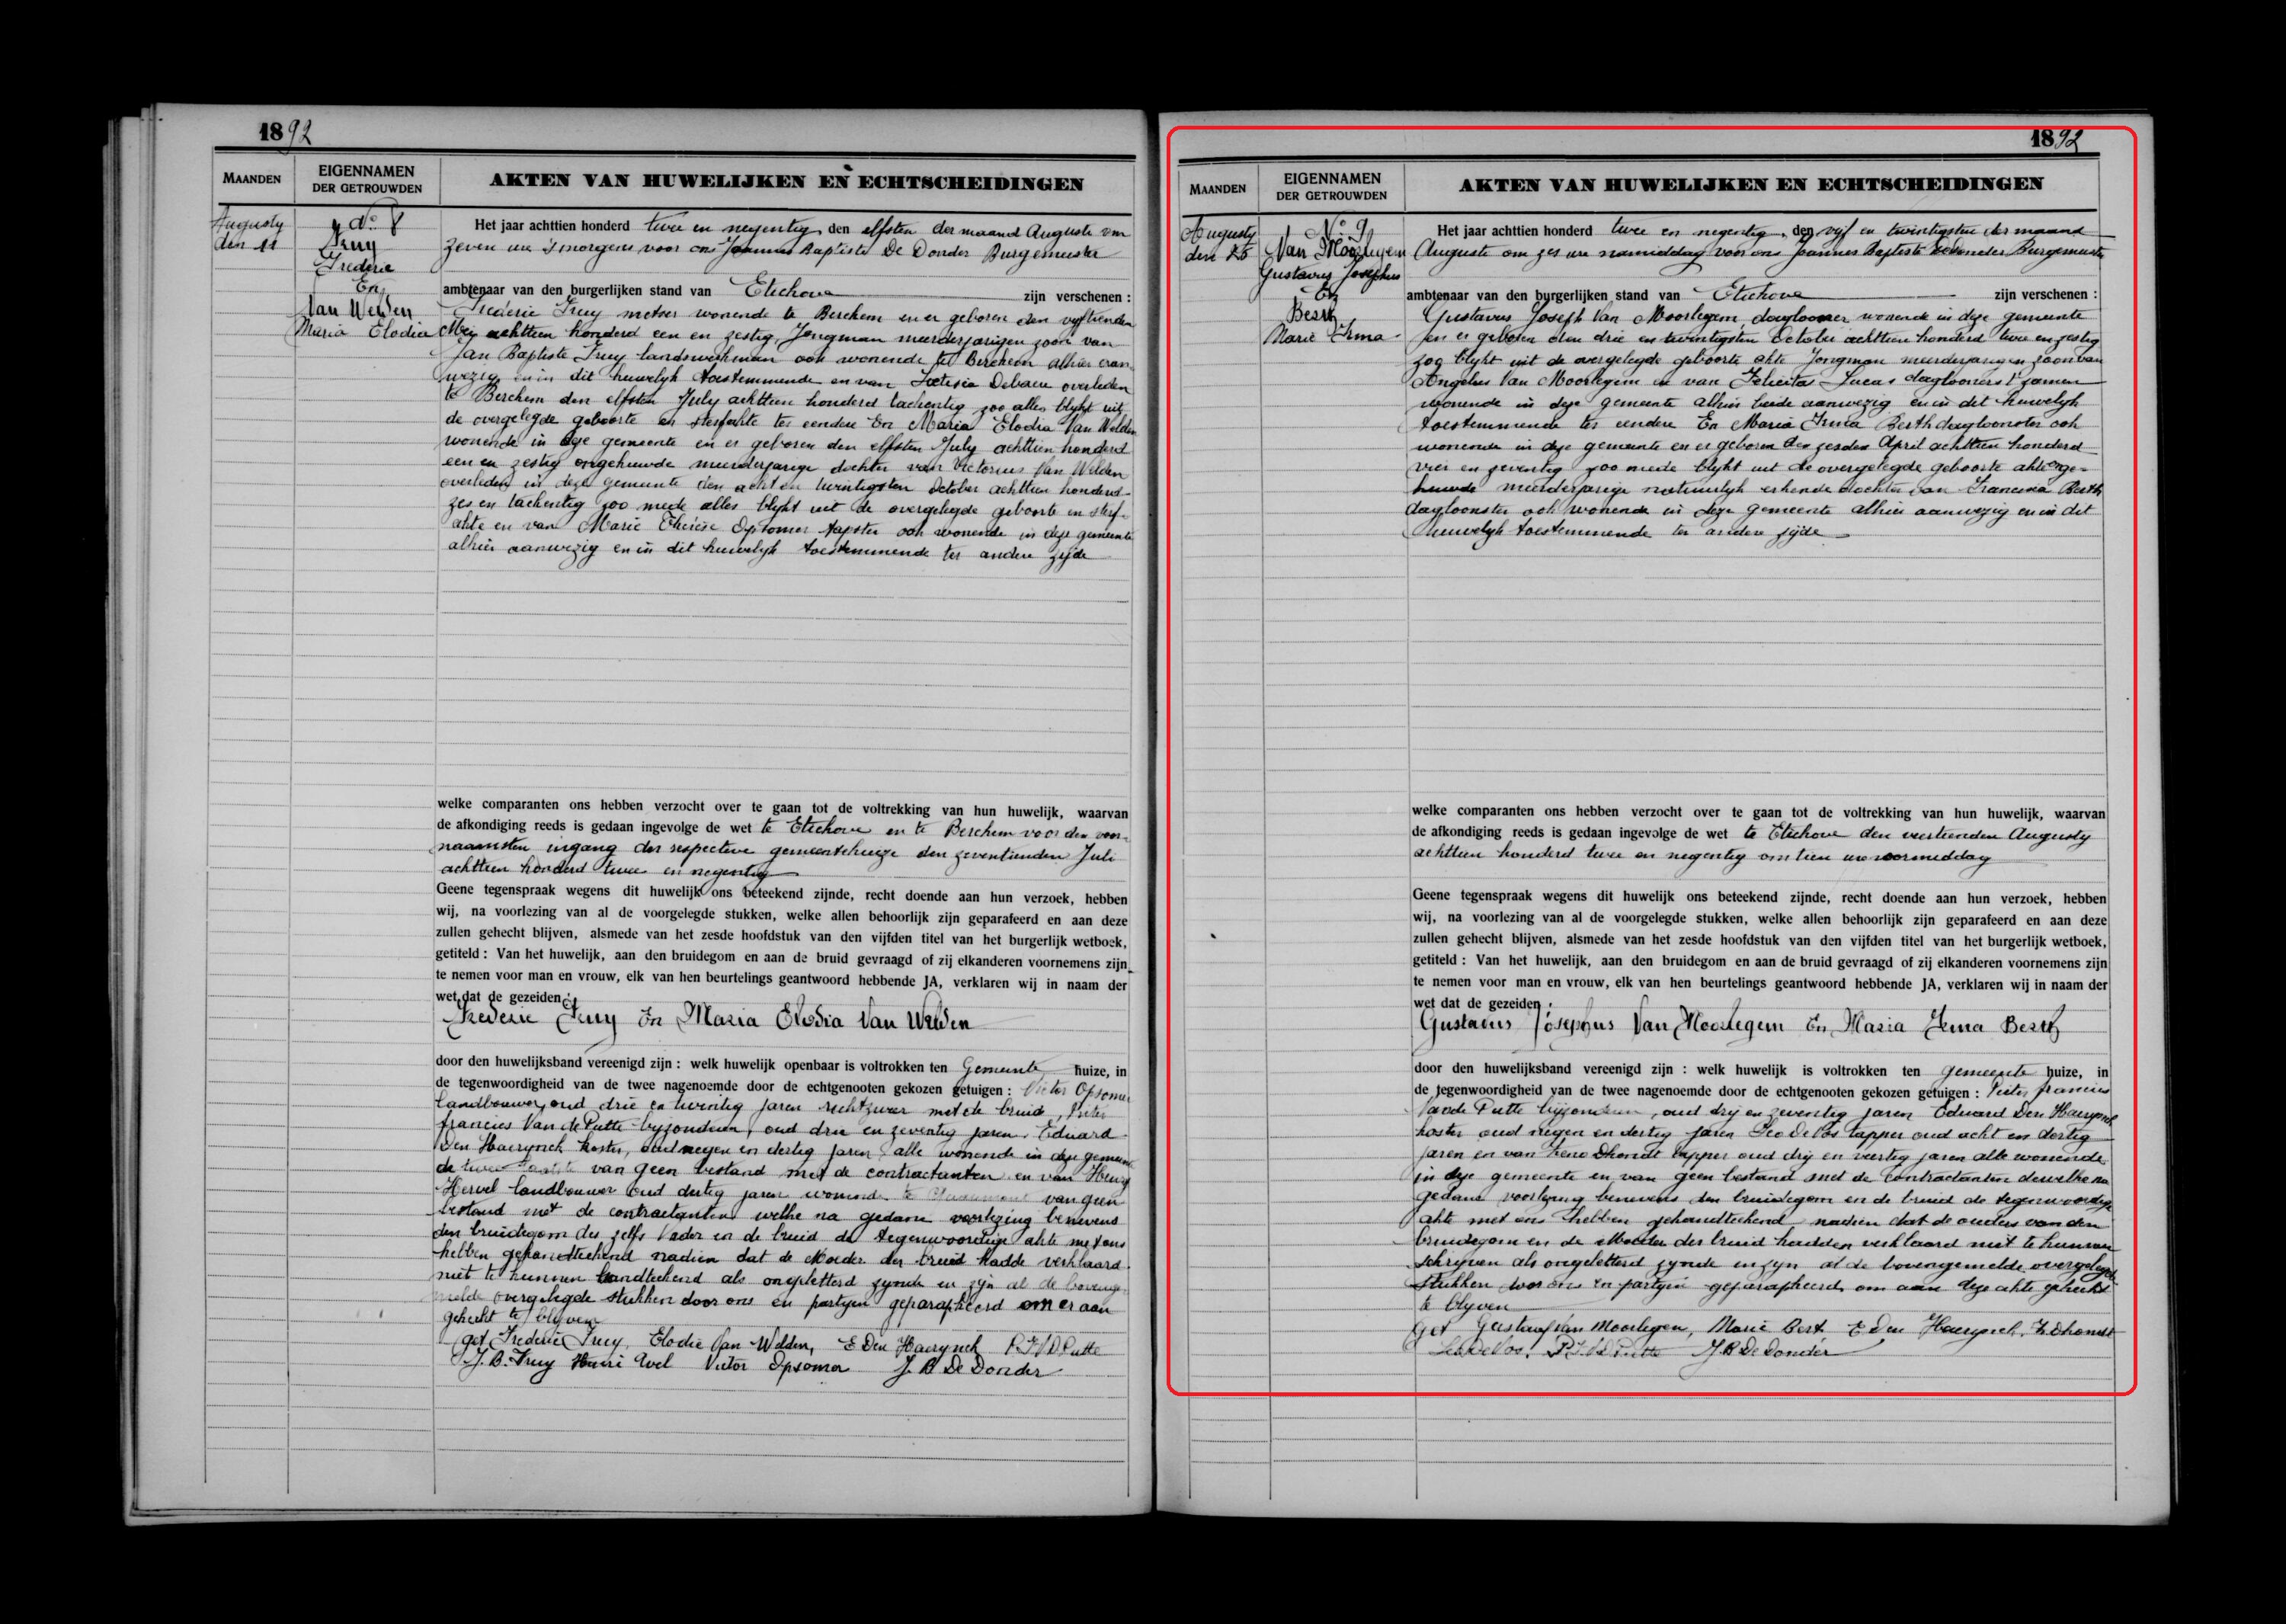 1892
MAANDEN
EIGENNAMEN
DER GETROUWDEN
AKTEN VAN HUWELIJKEN EN ECHTSCHEIDINGEN
Augusty
den 11
No 8
Fruy
Frederic
En
Van Welden
Maria Elodia
Het jaar achttien honderd twee en negentig, den elfsten der maand Auguste om
zeven ure s'morgens voor ons Joannes Baptiste De Donder Burgemeester
ambtenaar van den burgerlijken stand van Etichove zijn verschenen :
Frederic Fruy metser wonende te Berchem en er geboren den vyftienden
Mey achttien honderd een en zestig, Jongman meerderjarigen zoon van
Jan Baptiste Fruy landswerkman ook wonende te Berchem alhier aan-
wezig en in dit huwelyk toestemmende en van overleden
te Berchem den elfsten July achttien honderd tachentig zoo alles blykt uit
de overgelegde geboorte en sterfakte ter eendere En Maria Elodia Van Welden
wonende in deze gemeente en er geboren den elfsten July achttien honderd
een en zestig ongehuwde meerderjarige dochter van Victorius Van Welden
overleden in deze gemeente den acht en twintigsten October achttien honderd
zes en tachentig zoo mede alles blykt uit de overgelegde geboorte en sterf-
akte en van Marie Therese Opsomer tapster ook wonende in deze gemeente
alhier aanwezig en in dit huwelyk toestemmende ter andere zyde
welke comparanten ons hebben verzocht over te gaan tot de voltrekking van hun huwelijk, waarvan
de afkondiging reeds is gedaan ingevolge de wet te Etichove en te Berchem voor den voor-
naamsten ingang der respective gemeentehuize den zeventienden Juli
achttien honderd twee en negentig
Geene tegenspraak wegens dit huwelijk ons beteekend zijnde, recht doende aan hun verzoek, hebben
wij, na voorlezing van al de voorgelegde stukken, welke allen behoorlijk zijn geparafeerd en aan deze
zullen gehecht blijven, alsmede van het zesde hoofdstuk van den vijfden titel van het burgerlijk wetboek,
getiteld : Van het huwelijk, aan den bruidegom en aan de bruid gevraagd of zij elkanderen voornemens zijn
te nemen voor man en vrouw, elk van hen beurtelings geantwoord hebbende JA, verklaren wij in naam der
wet dat de gezeiden :
Frederic Fruy En Maria Elodia Van Welden
door den huwelijksband vereenigd zijn : welk huwelijk openbaar is voltrokken ten Gemeente huize, in
de tegenwoordigheid van de twee nagenoemde door de echtgenoten gekozen getuigen : Victor Opsomer
landbouwer, oud drie en twintig jaren rechtzweer met de bruid, Pieter
francies Van de Putte byzonderen, oud drie en zeventig jaren, Eduard
Den Haerynck koster, oud negen en dertig jaren alle wonende in deze gemeente
de twee laatste van geen bestand met de contractanten en van Henry
Hervel landbouwer oud dertig jaren wonende te van geen
bestand met de contractanten welke na gedane voorlezing benevens
den bruidegom des zelfs Vader en de bruid de tegenwoordige akte met ons
hebben gehandteekend nadien dat de Moeder der bruid hadde verklaard
niet te kunnen handteekend als ongeletterd zynde en zyn al de bovenge-
melde overgelegde stukken door ons en partyen geparapheerd om er aan
gehecht te blyven
get Frederic Fruy, Elodie Van Welden, E Den Haerynck P.F.V.D.Putte
J. B. Fruy Henri Evel Victor Opsomer J. B De Donder
1892
MAANDEN
EIGENNAMEN
DER GETROUWDEN
AKTEN VAN HUWELIJKEN EN ECHTSCHEIDINGEN
Augusty
den 25
No 9
Van Moorlegem
Gustavus Josephus
En
Berth
Marie Irma
Het jaar achttien honderd twee en negentig, den vijf en twintigsten der maand
Auguste om zes ure namiddag voor ons Joannes Baptiste Dedonder Burgemeester
ambtenaar van den burgerlijken stand van Etichove zijn verschenen :
Gustavus Joseph Van Moorlegem, dagloonner wonende in deze gemeente
en er geboren den drie en twintigsten October achttien honderd twee en zestig
zoo blykt uit de overgelegde geboorte akte Jongman meerderjarigen zoon van
Angelus Van Moorlegem en van Felicitas Lucas dagloonners t'zamen
wonende in deze gemeente alhier beide aanwezig en in dit huwelyk
toestemmende ter eendere En Maria Irma Berth dagloonster ook
wonende in deze gemeente en er geboren den zesden April achttien honderd
vier en zeventig zoo mede blykt uit de overgelegde geboorte akte onge-
huwde meerderjarige natuurlyk erkende dochter van Francisca Berth
dagloonster ook wonende in deze gemeente alhier aanwezig en in dit
huwelyk toestemmende ter andere zijde
welke comparanten ons hebben verzocht over te gaan tot de voltrekking van hun huwelijk, waarvan
de afkondiging reeds is gedaan ingevolge de wet te Etichove den veertienden Augusty
achttien honderd twee en negentig om tien ure voormiddag
Geene tegenspraak wegens dit huwelijk ons beteekend zijnde, recht doende aan hun verzoek, hebben
wij, na voorlezing van al de voorgelegde stukken, welke allen behoorlijk zijn geparafeerd en aan deze
zullen gehecht blijven, alsmede van het zesde hoofdstuk van den vijfden titel van het burgerlijk wetboek,
getiteld : Van het huwelijk, aan den bruidegom en aan de bruid gevraagd of zij elkanderen voornemens zijn
te nemen voor man en vrouw, elk van hen beurtelings geantwoord hebbende JA, verklaren wij in naam der
wet dat de gezeiden :
Gustavus Josephus Van Moorlegem En Maria Irma Berth
door den huwelijksband vereenigd zijn : welk huwelijk is voltrokken ten gemeente huize, in
de tegenwoordigheid van de twee nagenoemde door de echtgenooten gekozen getuigen : Pieter francies
Van de Putte byzonderen, oud dry en zeventig jaren Eduard Den Haerynck
koster oud negen en dertig jaren Leo De Vos tapper oud acht en dertig
jaren en van Dhondt tapper oud dry en veertig jaren alle wonende
in deze gemeente en van geen bestand met de contractanten dewelke na
gedane voorlezing benevens den bruidegom en de bruid de tegenwoordige
akte met ons hebben gehandteekend nadien dat de ouders van den
bruidegom en de Moeder der bruid hadden verklaard niet te kunnen
schryven als ongeletterd zynde en zyn al de bovengemelde overgelegde
stukken door ons en partyen geparapheerd om aan deze akte gehecht
te blyven
Get Gustaaf Van Moorlegem, Marie Bert. E Den Haerynck, Dhondt
Leo De Vos, P.F.V.D Putte J B De Donder